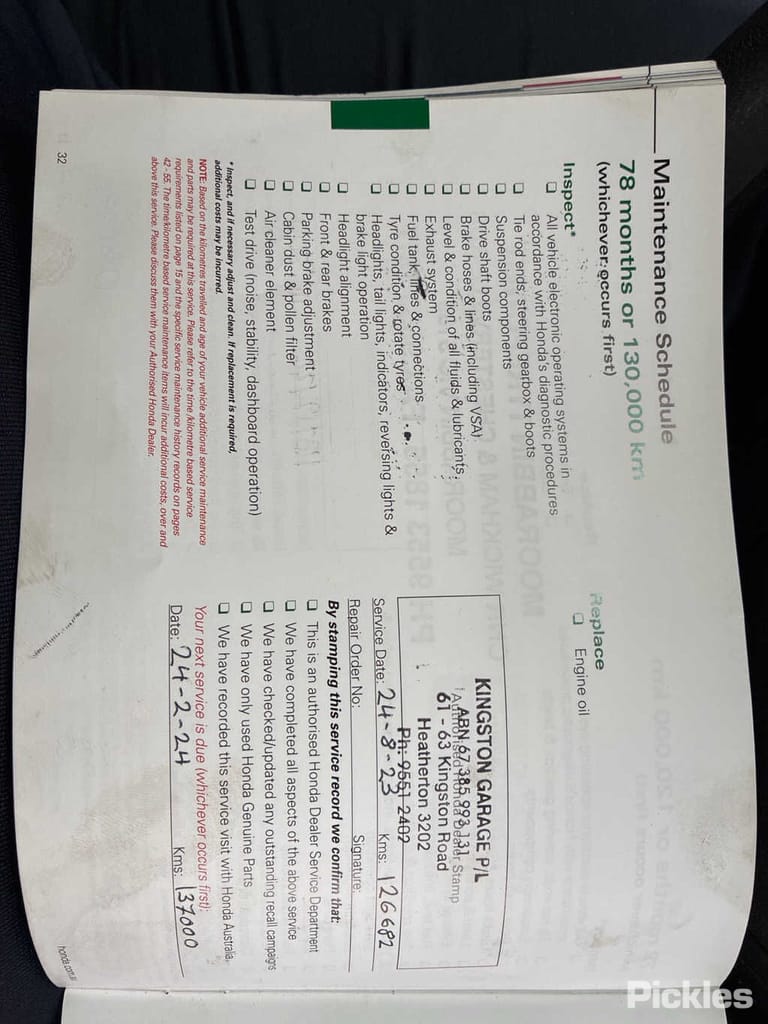 Maintenance Schedule
78 months or 130,000 km
(whichever occurs first)
Inspect*
All vehicle electronic operating systems in
accordance with Honda's diagnostic procedures
Tie rod ends, steering gearbox & boots
Suspension components
Drive shaft boots
Brake hoses & lines (including VSA)
Level & condition of all fluids & lubricants
Exhaust system
Fuel tank, lines & connections
Tyre condition & rotate tyres
Headlights, tail lights, indicators, reversing lights &
brake light operation
Headlight alignment
Front & rear brakes
Parking brake adjustment
Cabin dust & pollen filter
Air cleaner element
Test drive (noise, stability, dashboard operation)
* Inspect, and if necessary adjust and clean. If replacement is required,
additional costs may be incurred.
NOTE: Based on the kilometres travelled and age of your vehicle additional service maintenance
and parts may be required at this service. Please refer to the time /kilometre based service
requirements listed on page 15 and the specific service maintenance history records on pages
42 - 55. The time/kilometre based service maintenance items will incur additional costs, over and
above this service. Please discuss them with your Authorised Honda Dealer.
32
Replace
Engine oil
KINGSTON GARAGE P/L
ABN 67 385 993 131
Authorised Honda Dealer Stamp
61 - 63 Kingston Road
Heatherton 3202
Ph: 9551 2402
Service Date: 24-8-23 Kms: 126682
Repair Order No: Signature:
By stamping this service record we confirm that:
This is an authorised Honda Dealer Service Department
We have completed all aspects of the above service
We have checked/updated any outstanding recall campaigns
We have only used Honda Genuine Parts
We have recorded this service visit with Honda Australia.
Your next service is due (whichever occurs first):
Date: 24-2-24 Kms: 137000
honda.com.au
Pickles